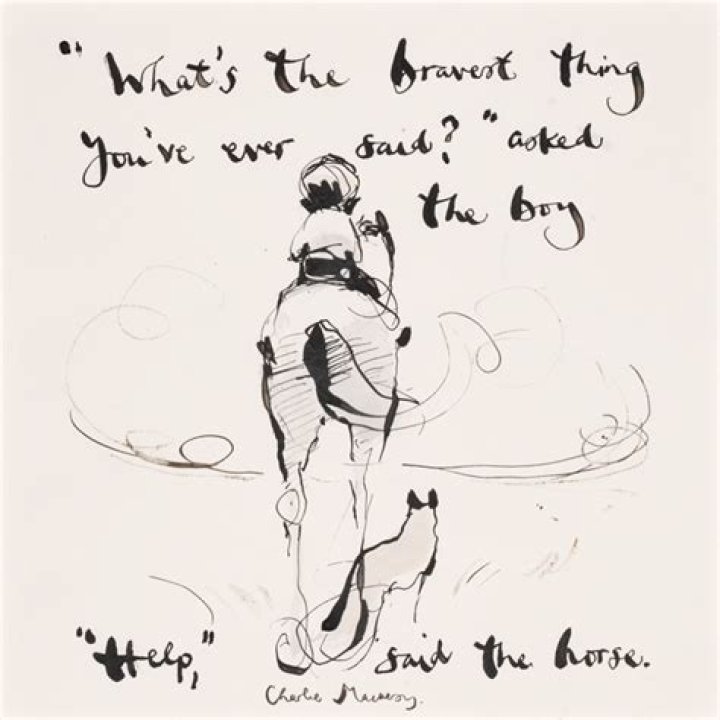 "What's the bravest thing
You've ever said?" asked
the boy
"Help," said the horse.
Charlie Mackesy.